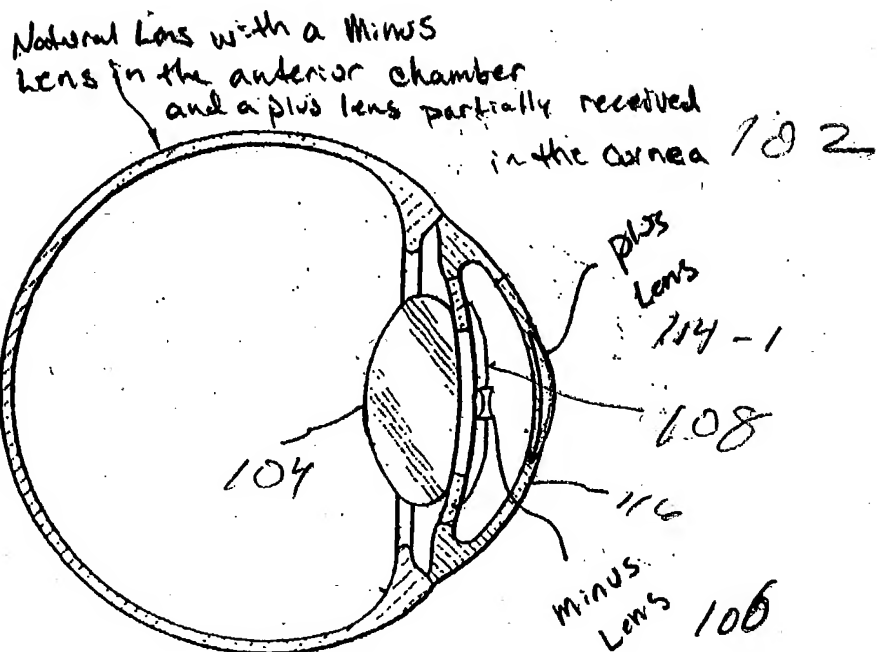 Natural Lens with a Minus
Lens in the anderior chamber
and a plus lens partially received
in the cornea 102
plus
Lens
114-1
108
104
116
minus
Lens 106